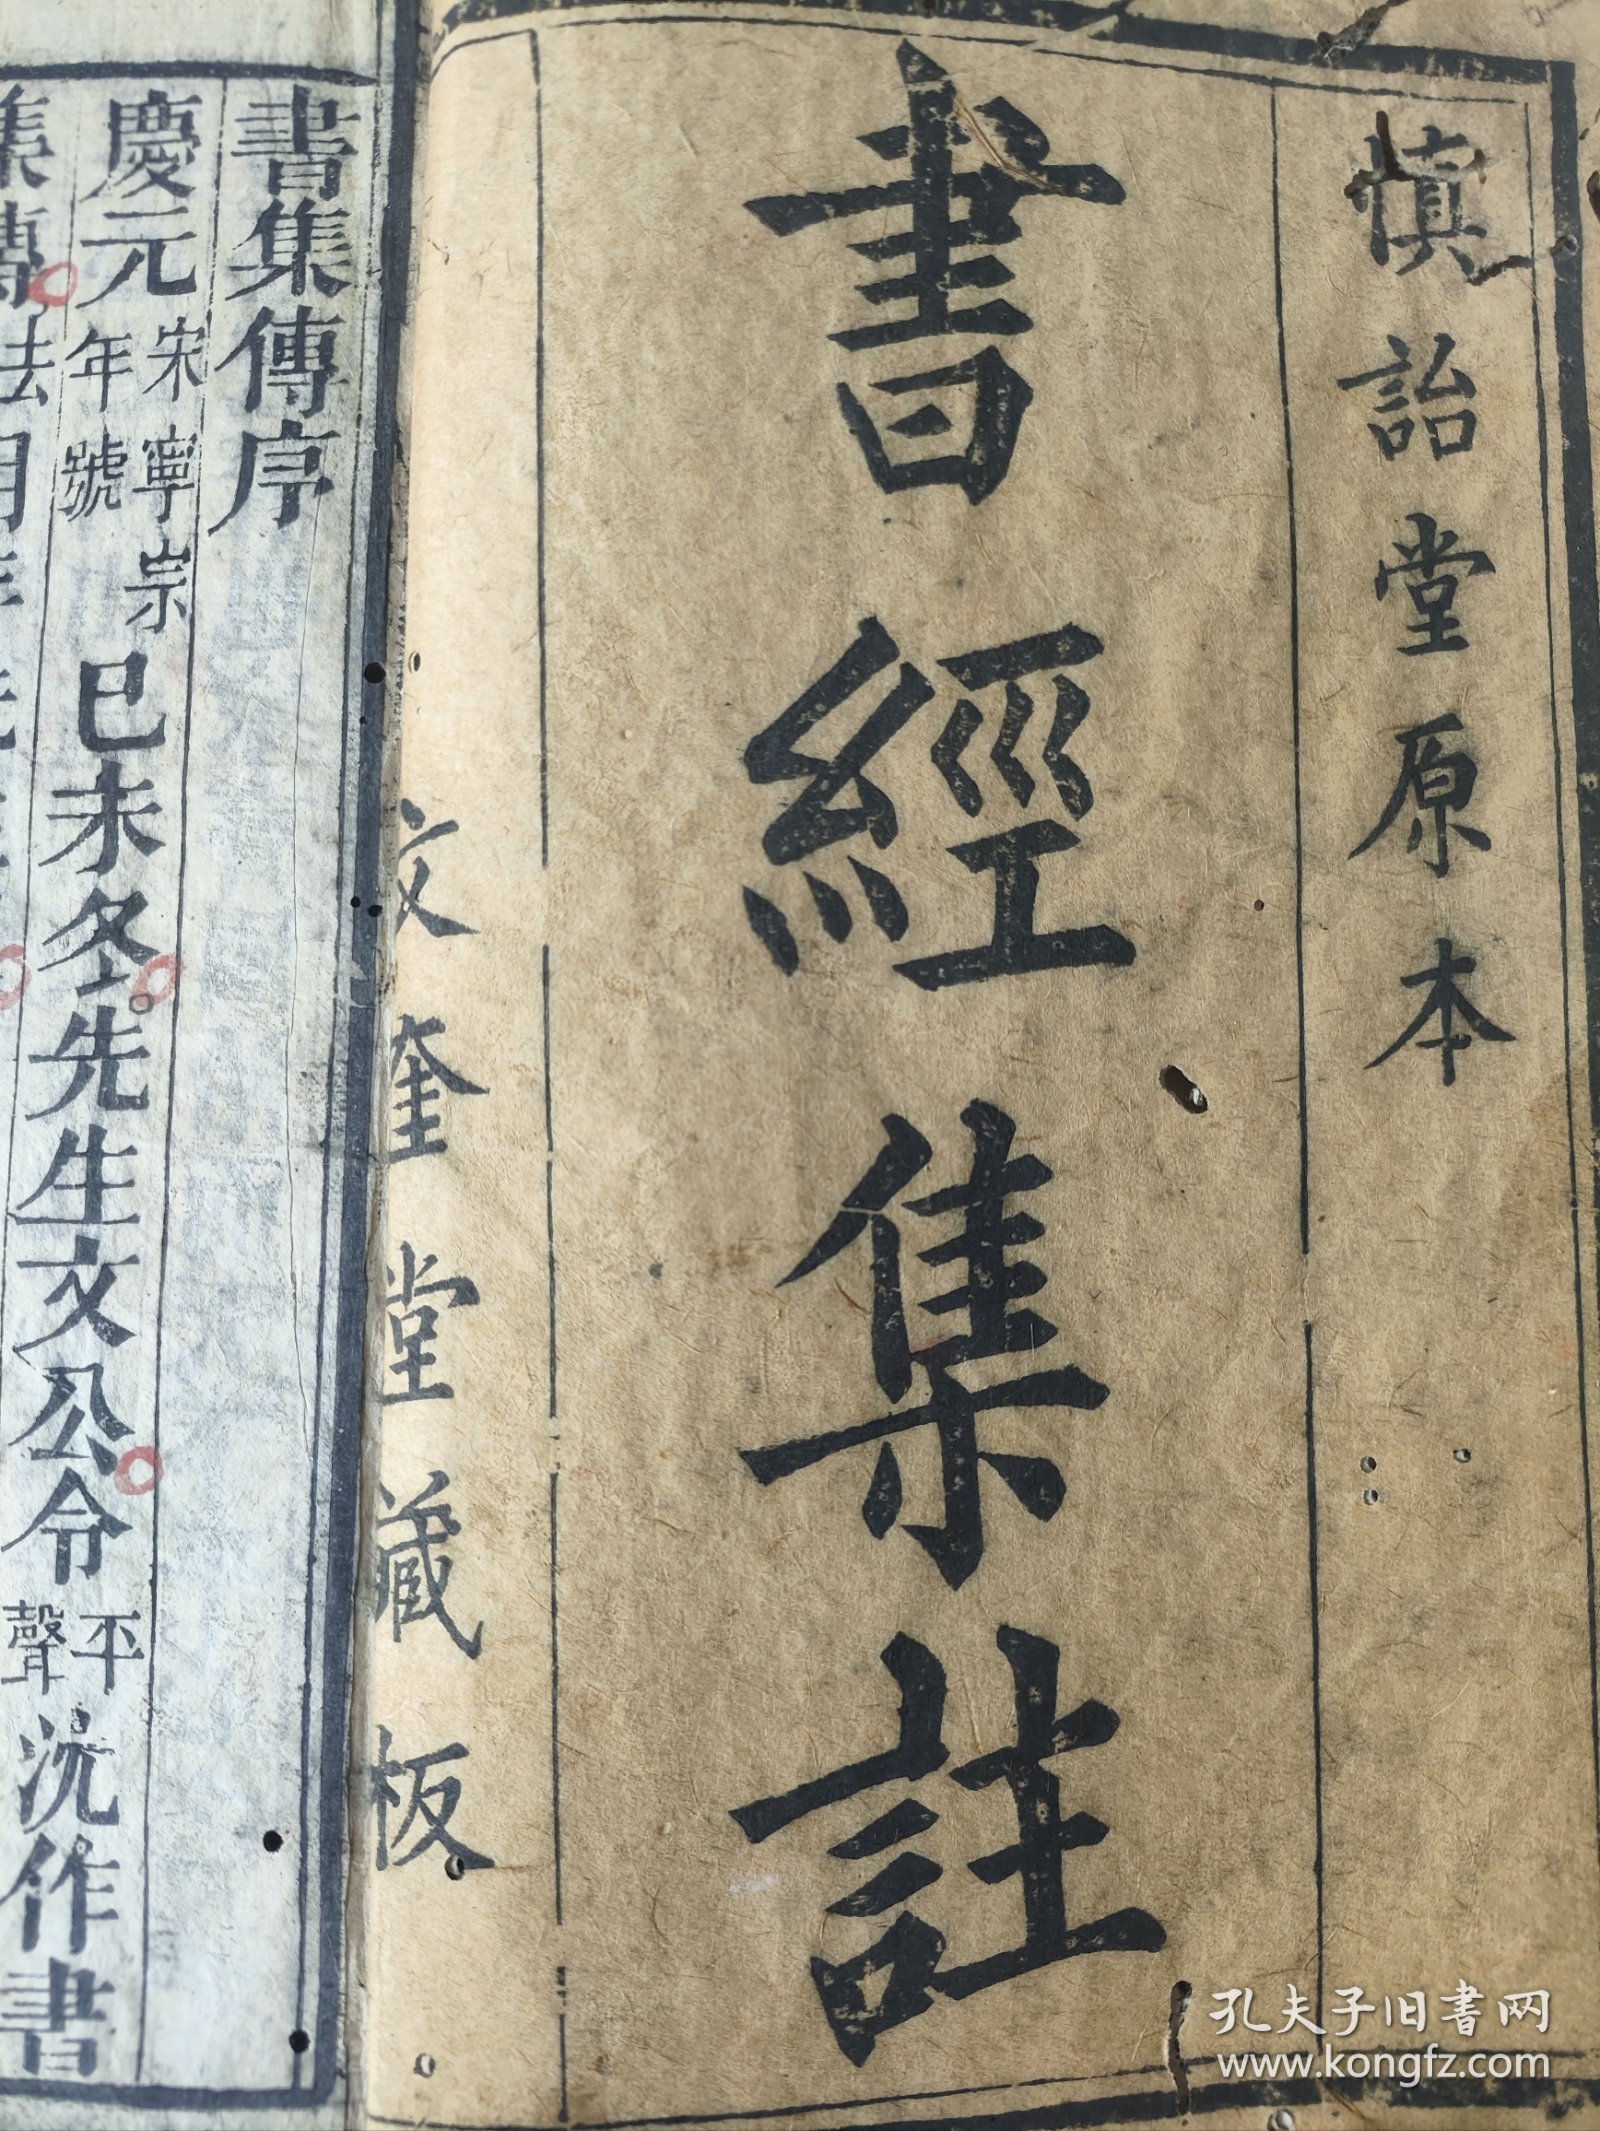 慎詒堂原本
書經集註
文奎堂藏板
書集傳序
慶元宋寧宗年號已未冬先生文公令平聲沈作書
集傳
孔夫子旧书网
www.kongfz.com